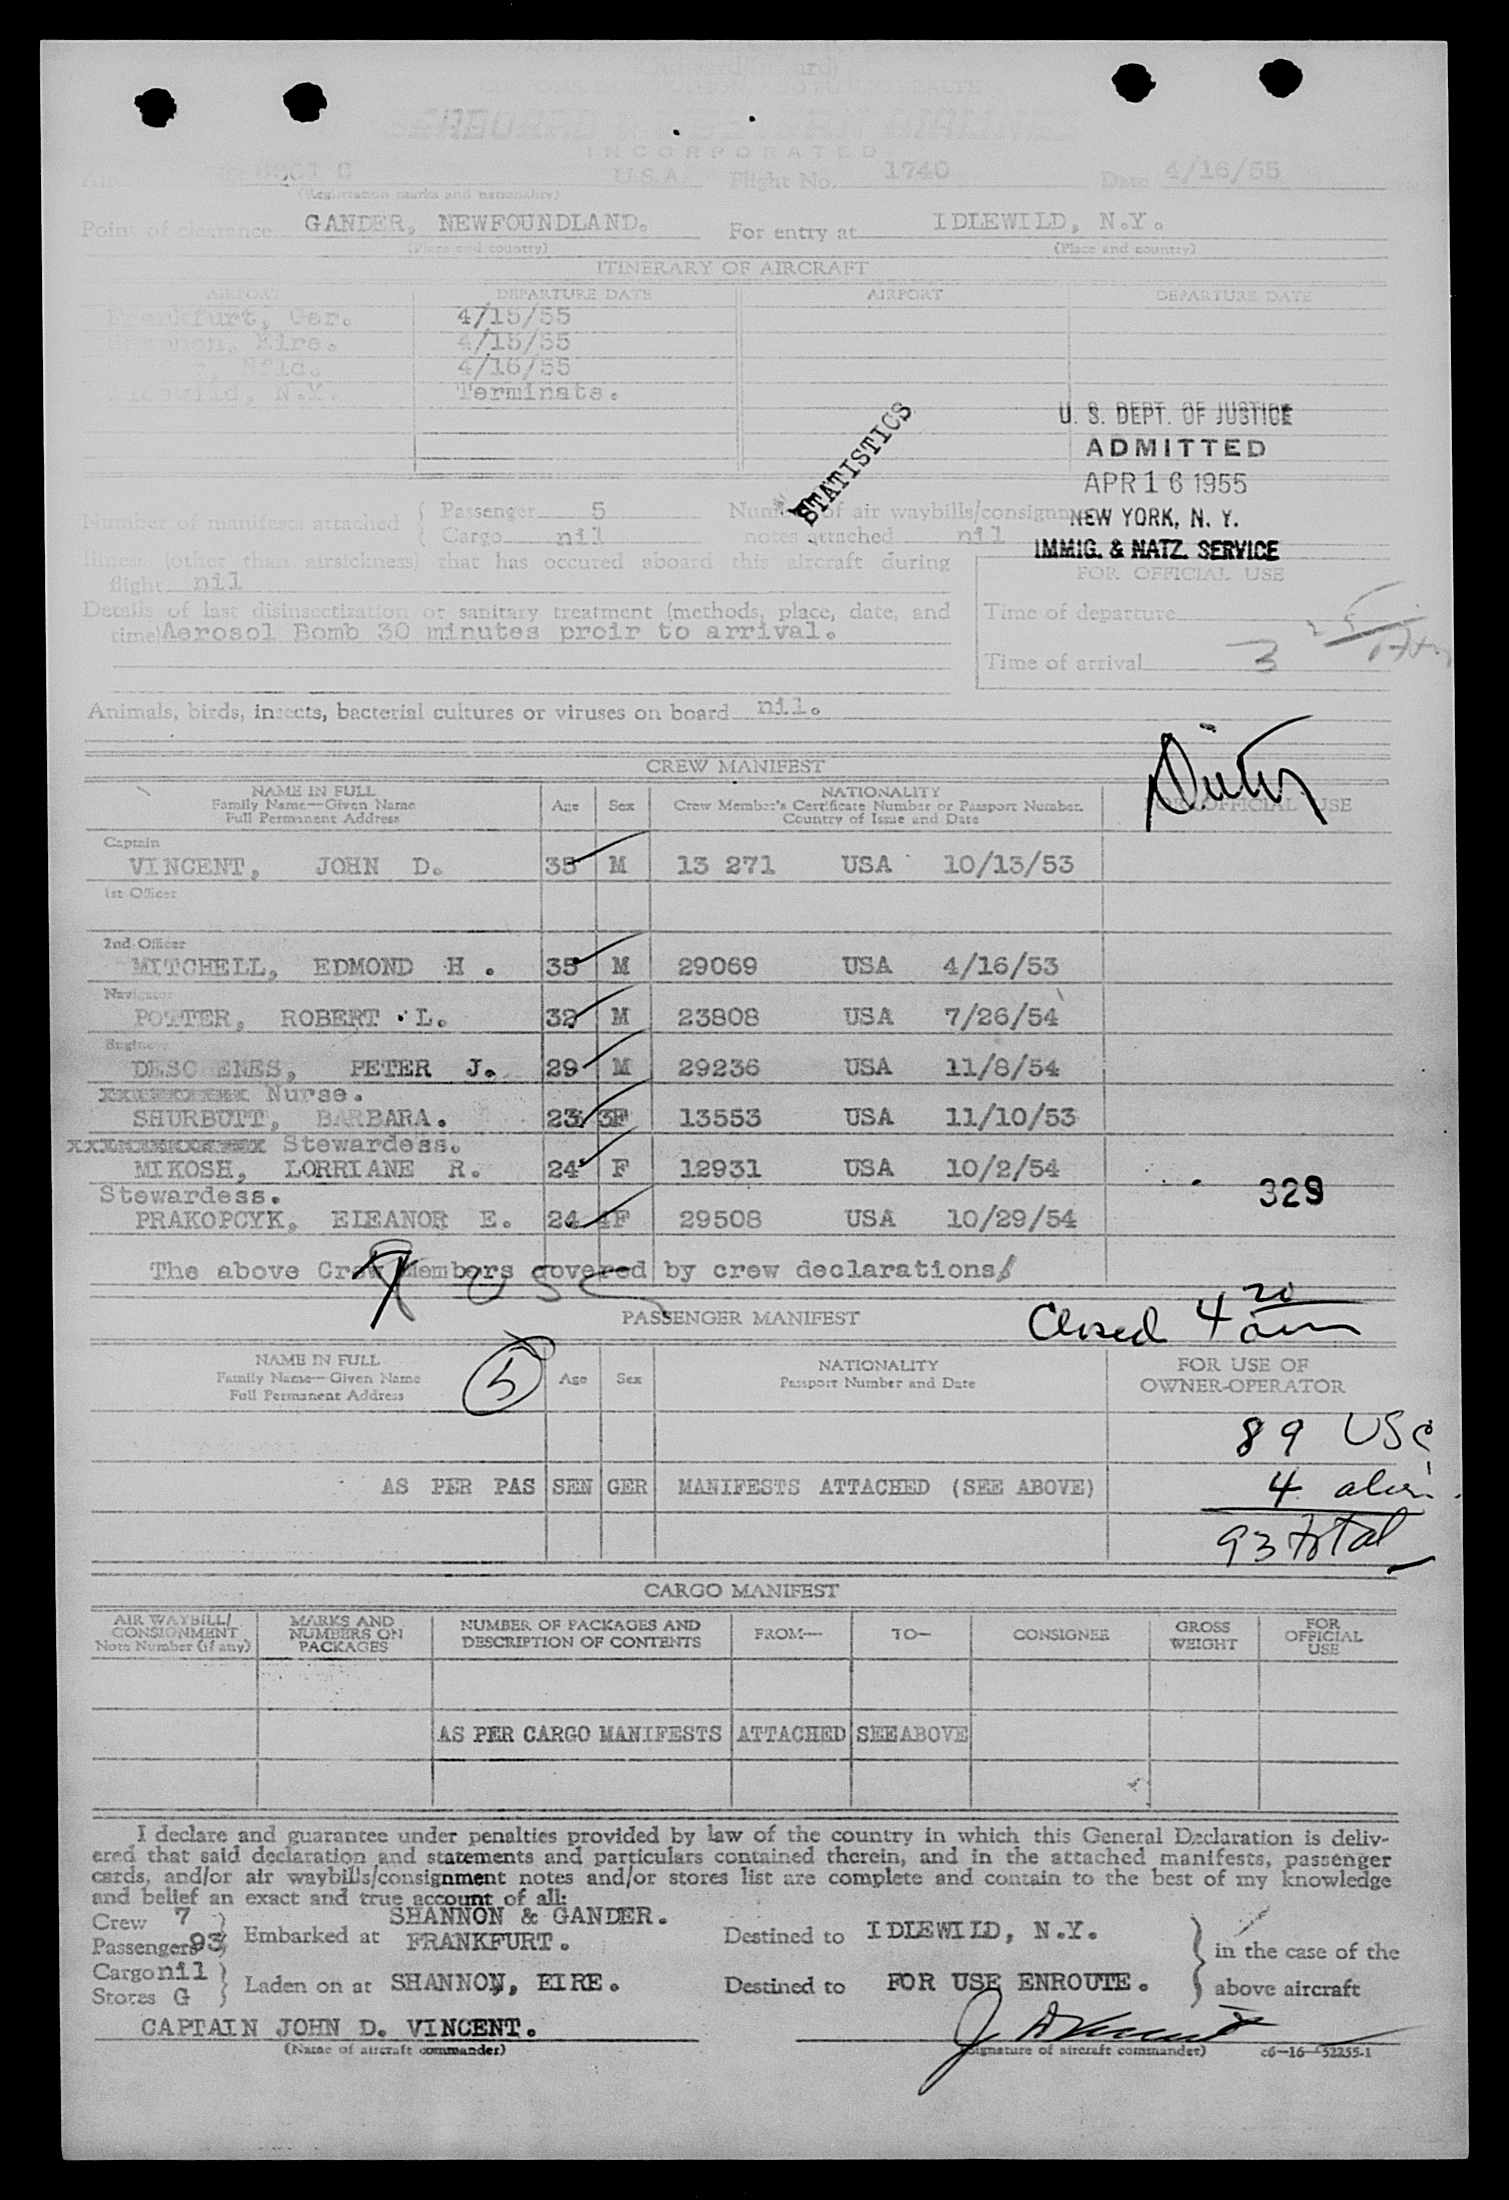 INCORPORATED
U.S.A. Flight No. 1740 Date 4/16/55
(Registration marks and nationality)
Point of clearance GANDER, NEWFOUNDLAND. For entry at IDLEWILD, N.Y.
(Place and country) (Place and country)
ITINERARY OF AIRCRAFT
AIRPORT DEPARTURE DATE AIRPORT DEPARTURE DATE
Frankfurt, Ger. 4/15/55
Shannon, Eire. 4/15/55
Nfld. 4/16/55
Idlewild, N.Y. Terminate.
STATISTICS
U. S. DEPT. OF JUSTICE
ADMITTED
APR 16 1955
NEW YORK, N. Y.
IMMIG. & NATZ. SERVICE
Number of manifests attached { Passenger 5 Number of air waybills/consignment
Cargo nil notes attached nil
Illness (other than airsickness) that has occured aboard this aircraft during
flight nil
FOR OFFICIAL USE
Details of last disinsectization or sanitary treatment (methods, place, date, and
time) Aerosol Bomb 30 minutes proir to arrival.
Time of departure
Time of arrival 3
Animals, birds, insects, bacterial cultures or viruses on board nil.
CREW MANIFEST
NAME IN FULL
Family Name—Given Name
Full Permanent Address
Age Sex
NATIONALITY
Crew Member's Certificate Number or Passport Number.
Country of Issue and Date
FOR OFFICIAL USE
Captain
VINCENT, JOHN D. 35 M 13 271 USA 10/13/53
1st Officer
2nd Officer
MITCHELL, EDMOND H . 35 M 29069 USA 4/16/53
Navigator
POTTER, ROBERT L. 32 M 23808 USA 7/26/54
Engineer
DESC ENES, PETER J. 29 M 29236 USA 11/8/54
Nurse.
SHURBUTT, BARBARA. 23 F 13553 USA 11/10/53
Stewardess.
MIKOSH, LORRIANE R. 24 F 12931 USA 10/2/54
Stewardess.
329
PRAKOPCYK, ELEANOR E. 24 F 29508 USA 10/29/54
The above Crew Members covered by crew declarations
USC
PASSENGER MANIFEST
Closed 4 20 am
NAME IN FULL
Family Name—Given Name
Full Permanent Address
5
Age Sex
NATIONALITY
Passport Number and Date
FOR USE OF
OWNER-OPERATOR
89 USC
AS PER PAS SEN GER MANIFESTS ATTACHED (SEE ABOVE)
4 alien
93 total
CARGO MANIFEST
AIR WAYBILL/
CONSIGNMENT
Note Number (if any)
MARKS AND
NUMBERS ON
PACKAGES
NUMBER OF PACKAGES AND
DESCRIPTION OF CONTENTS
FROM— TO— CONSIGNEE
GROSS
WEIGHT
FOR
OFFICIAL
USE
AS PER CARGO MANIFESTS ATTACHED SEE ABOVE
I declare and guarantee under penalties provided by law of the country in which this General Declaration is deliv-
ered that said declaration and statements and particulars contained therein, and in the attached manifests, passenger
cards, and/or air waybills/consignment notes and/or stores list are complete and contain to the best of my knowledge
and belief an exact and true account of all:
Crew 7 SHANNON & GANDER.
Passengers 93 } Embarked at FRANKFURT. Destined to IDLEWILD, N.Y. in the case of the
Cargo nil
Stores G } Laden on at SHANNON, EIRE. Destined to FOR USE ENROUTE. above aircraft
CAPTAIN JOHN D. VINCENT. J D Vincent
(Name of aircraft commander) (Signature of aircraft commander) c6—16—52255-1